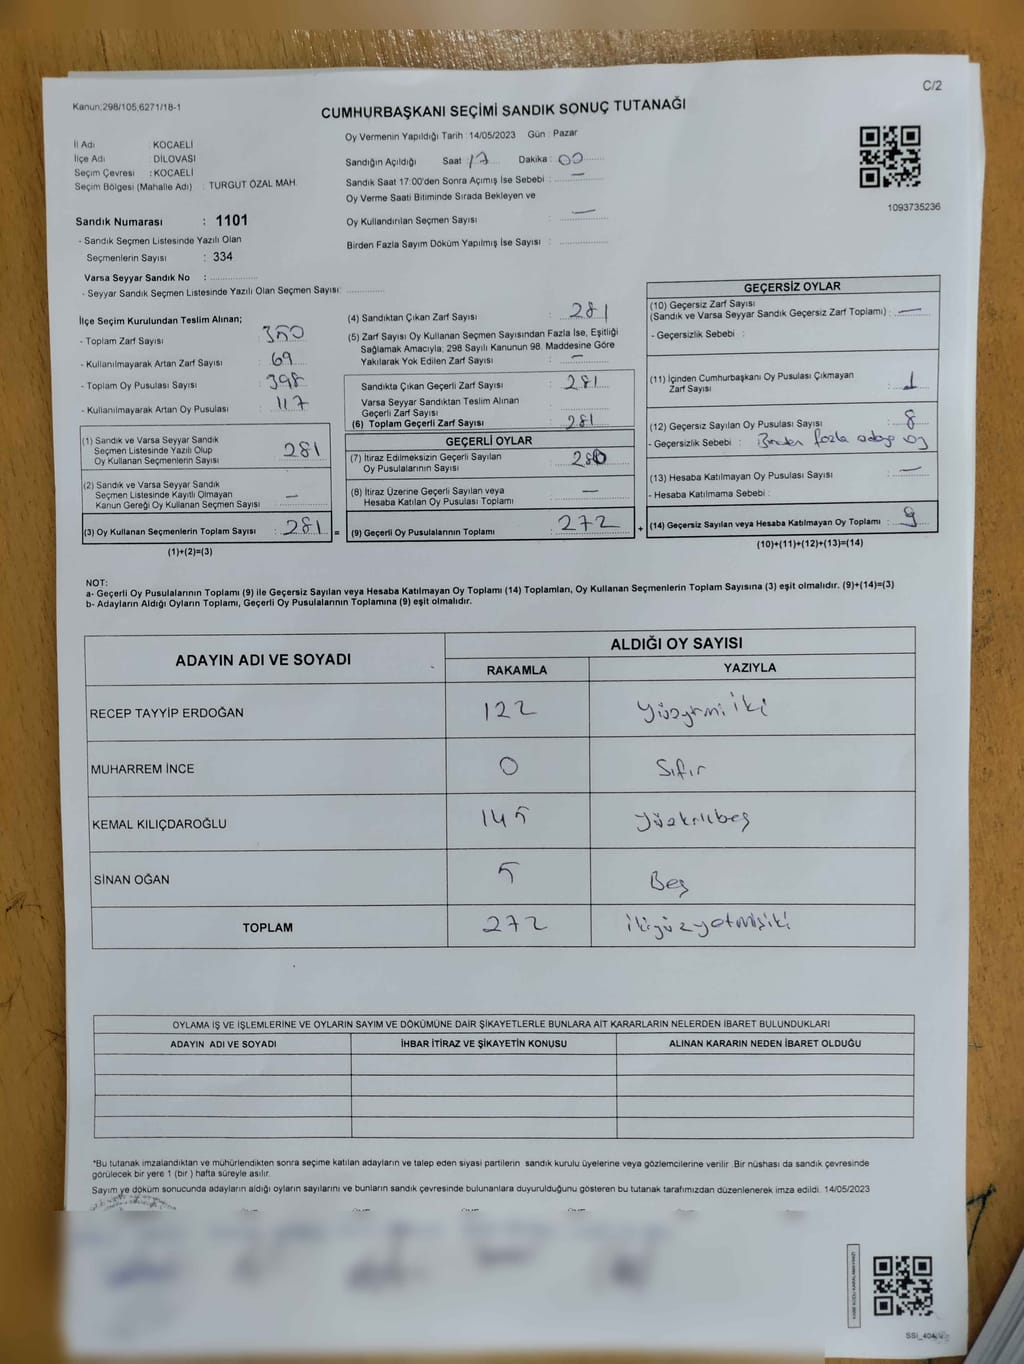 C/2
Kanun;298/105,6271/18-1
CUMHURBAŞKANI SEÇİMİ SANDIK SONUÇ TUTANAĞI
İl Adı : KOCAELİ
İlçe Adı : DİLOVASI
Seçim Çevresi : KOCAELİ
Seçim Bölgesi (Mahalle Adı) : TURGUT ÖZAL MAH.
Sandık Numarası : 1101
- Sandık Seçmen Listesinde Yazılı Olan
Seçmenlerin Sayısı : 334
Varsa Seyyar Sandık No :
- Seyyar Sandık Seçmen Listesinde Yazılı Olan Seçmen Sayısı:
Oy Vermenin Yapıldığı Tarih :14/05/2023 Gün : Pazar
Sandığın Açıldığı Saat 17 Dakika : 00
Sandık Saat 17:00'den Sonra Açımış İse Sebebi : —
Oy Verme Saati Bitiminde Sırada Bekleyen ve
Oy Kullandırılan Seçmen Sayısı : —
Birden Fazla Sayım Döküm Yapılmış İse Sayısı :
1093735236
İlçe Seçim Kurulundan Teslim Alınan;
- Toplam Zarf Sayısı : 350
- Kullanılmayarak Artan Zarf Sayısı : 69
- Toplam Oy Pusulası Sayısı : 398
- Kullanılmayarak Artan Oy Pusulası : 117
(1) Sandık ve Varsa Seyyar Sandık
Seçmen Listesinde Yazılı Olup
Oy Kullanan Seçmenlerin Sayısı : 281
(2) Sandık ve Varsa Seyyar Sandık
Seçmen Listesinde Kayıtlı Olmayan
Kanun Gereği Oy Kullanan Seçmen Sayısı : —
(3) Oy Kullanan Seçmenlerin Toplam Sayısı : 281 =
(1)+(2)=(3)
(4) Sandıktan Çıkan Zarf Sayısı : 281
(5) Zarf Sayısı Oy Kullanan Seçmen Sayısından Fazla İse, Eşitliği
Sağlamak Amacıyla; 298 Sayılı Kanunun 98. Maddesine Göre
Yakılarak Yok Edilen Zarf Sayısı : —
Sandıkta Çıkan Geçerli Zarf Sayısı : 281
Varsa Seyyar Sandıktan Teslim Alınan
Geçerli Zarf Sayısı :
(6) Toplam Geçerli Zarf Sayısı : 281
GEÇERLİ OYLAR
(7) İtiraz Edilmeksizin Geçerli Sayılan
Oy Pusulalarının Sayısı : 280
(8) İtiraz Üzerine Geçerli Sayılan veya
Hesaba Katılan Oy Pusulası Toplamı : —
(9) Geçerli Oy Pusulalarının Toplamı : 272 +
GEÇERSİZ OYLAR
(10) Geçersiz Zarf Sayısı
(Sandık ve Varsa Seyyar Sandık Geçersiz Zarf Toplamı) : —
- Geçersizlik Sebebi :
(11) İçinden Cumhurbaşkanı Oy Pusulası Çıkmayan
Zarf Sayısı : 1
(12) Geçersiz Sayılan Oy Pusulası Sayısı : 8
- Geçersizlik Sebebi : Birden fazla adaya oy
(13) Hesaba Katılmayan Oy Pusulası Sayısı : —
- Hesaba Katılmama Sebebi :
(14) Geçersiz Sayılan veya Hesaba Katılmayan Oy Toplamı : 9
(10)+(11)+(12)+(13)=(14)
NOT:
a- Geçerli Oy Pusulalarının Toplamı (9) ile Geçersiz Sayılan veya Hesaba Katılmayan Oy Toplamı (14) Toplamları, Oy Kullanan Seçmenlerin Toplam Sayısına (3) eşit olmalıdır. (9)+(14)=(3)
b- Adayların Aldığı Oyların Toplamı, Geçerli Oy Pusulalarının Toplamına (9) eşit olmalıdır.
ADAYIN ADI VE SOYADI ALDIĞI OY SAYISI
RAKAMLA YAZIYLA
RECEP TAYYİP ERDOĞAN 122 Yüzyirmi iki
MUHARREM İNCE 0 Sıfır
KEMAL KILIÇDAROĞLU 145 Yüzkırkbeş
SİNAN OĞAN 5 Beş
TOPLAM 272 ikiyüzyetmişiki
OYLAMA İŞ VE İŞLEMLERİNE VE OYLARIN SAYIM VE DÖKÜMÜNE DAİR ŞİKAYETLERLE BUNLARA AİT KARARLARIN NELERDEN İBARET BULUNDUKLARI
ADAYIN ADI VE SOYADI İHBAR İTİRAZ VE ŞİKAYETİN KONUSU ALINAN KARARIN NEDEN İBARET OLDUĞU
*Bu tutanak imzalandıktan ve mühürlendikten sonra seçime katılan adayların ve talep eden siyasi partilerin sandık kurulu üyelerine veya gözlemcilerine verilir .Bir nüshası da sandık çevresinde
görülecek bir yere 1 (bir ) hafta süreyle asılır.
Sayım ve döküm sonucunda adayların aldığı oyların sayılarını ve bunların sandık çevresinde bulunanlara duyurulduğunu gösteren bu tutanak tarafımızdan düzenlenerek imza edildi. 14/05/2023